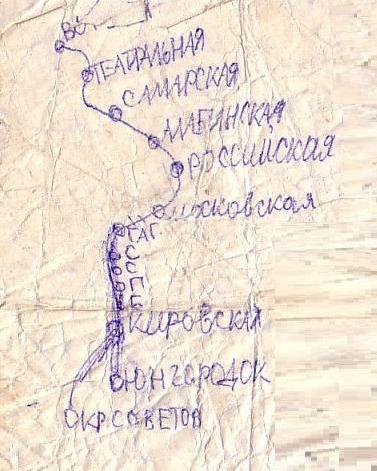 ТЕАТРАЛЬНАЯ
САМАРСКАЯ
АЛАБИНСКАЯ
РОССИЙСКАЯ
московская
ГАГ
С
С
П
Б
КИРОВСКАЯ
ЮНГОРОДОК
КР СОВЕТОВ